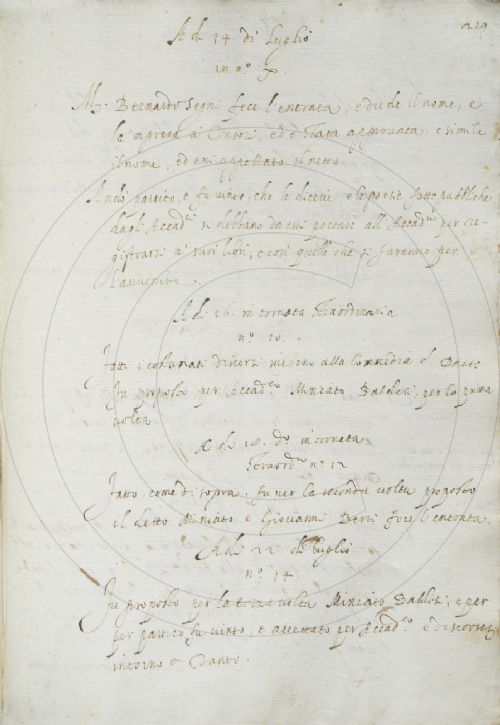 229
A dì 14. di luglio
in n.º X.
M. Bernardo Segni fece l'entrata, e diede il nome, e
la impresa a' Censori, ed è stata approvata, e simile
il nome, ed esi appellato il netto.
Andò partito, e fu vinto, che le dicerie, e le poesie fatte pubbliche
dagli Accad.ci si debbano da essi portare all'Accad.ia per re-
gistrarsi a' suoi libri, e così quelle che si faranno per
l'avvenire.
A dì 16. in tornata straordinaria
n.º 10.
Fatti i costumati divorsi intorno alla Commedia di Dante
fu proposto per Accad.co Miniato Baldesi, per la prima
volta
A dì 18. d.º in tornata
straord.ia n.º 12
Fatto, come di sopra. fu per la seconda volta proposto
il detto Miniato. e Giovanni Berti fece l'entrata.
A dì 22 di luglio
n.º 14.
Fu proposto per la terza volta Miniato Baldesi, e per
per partito fu vinto, e accettato per Accad.co e discorresi
intorno a Dante.